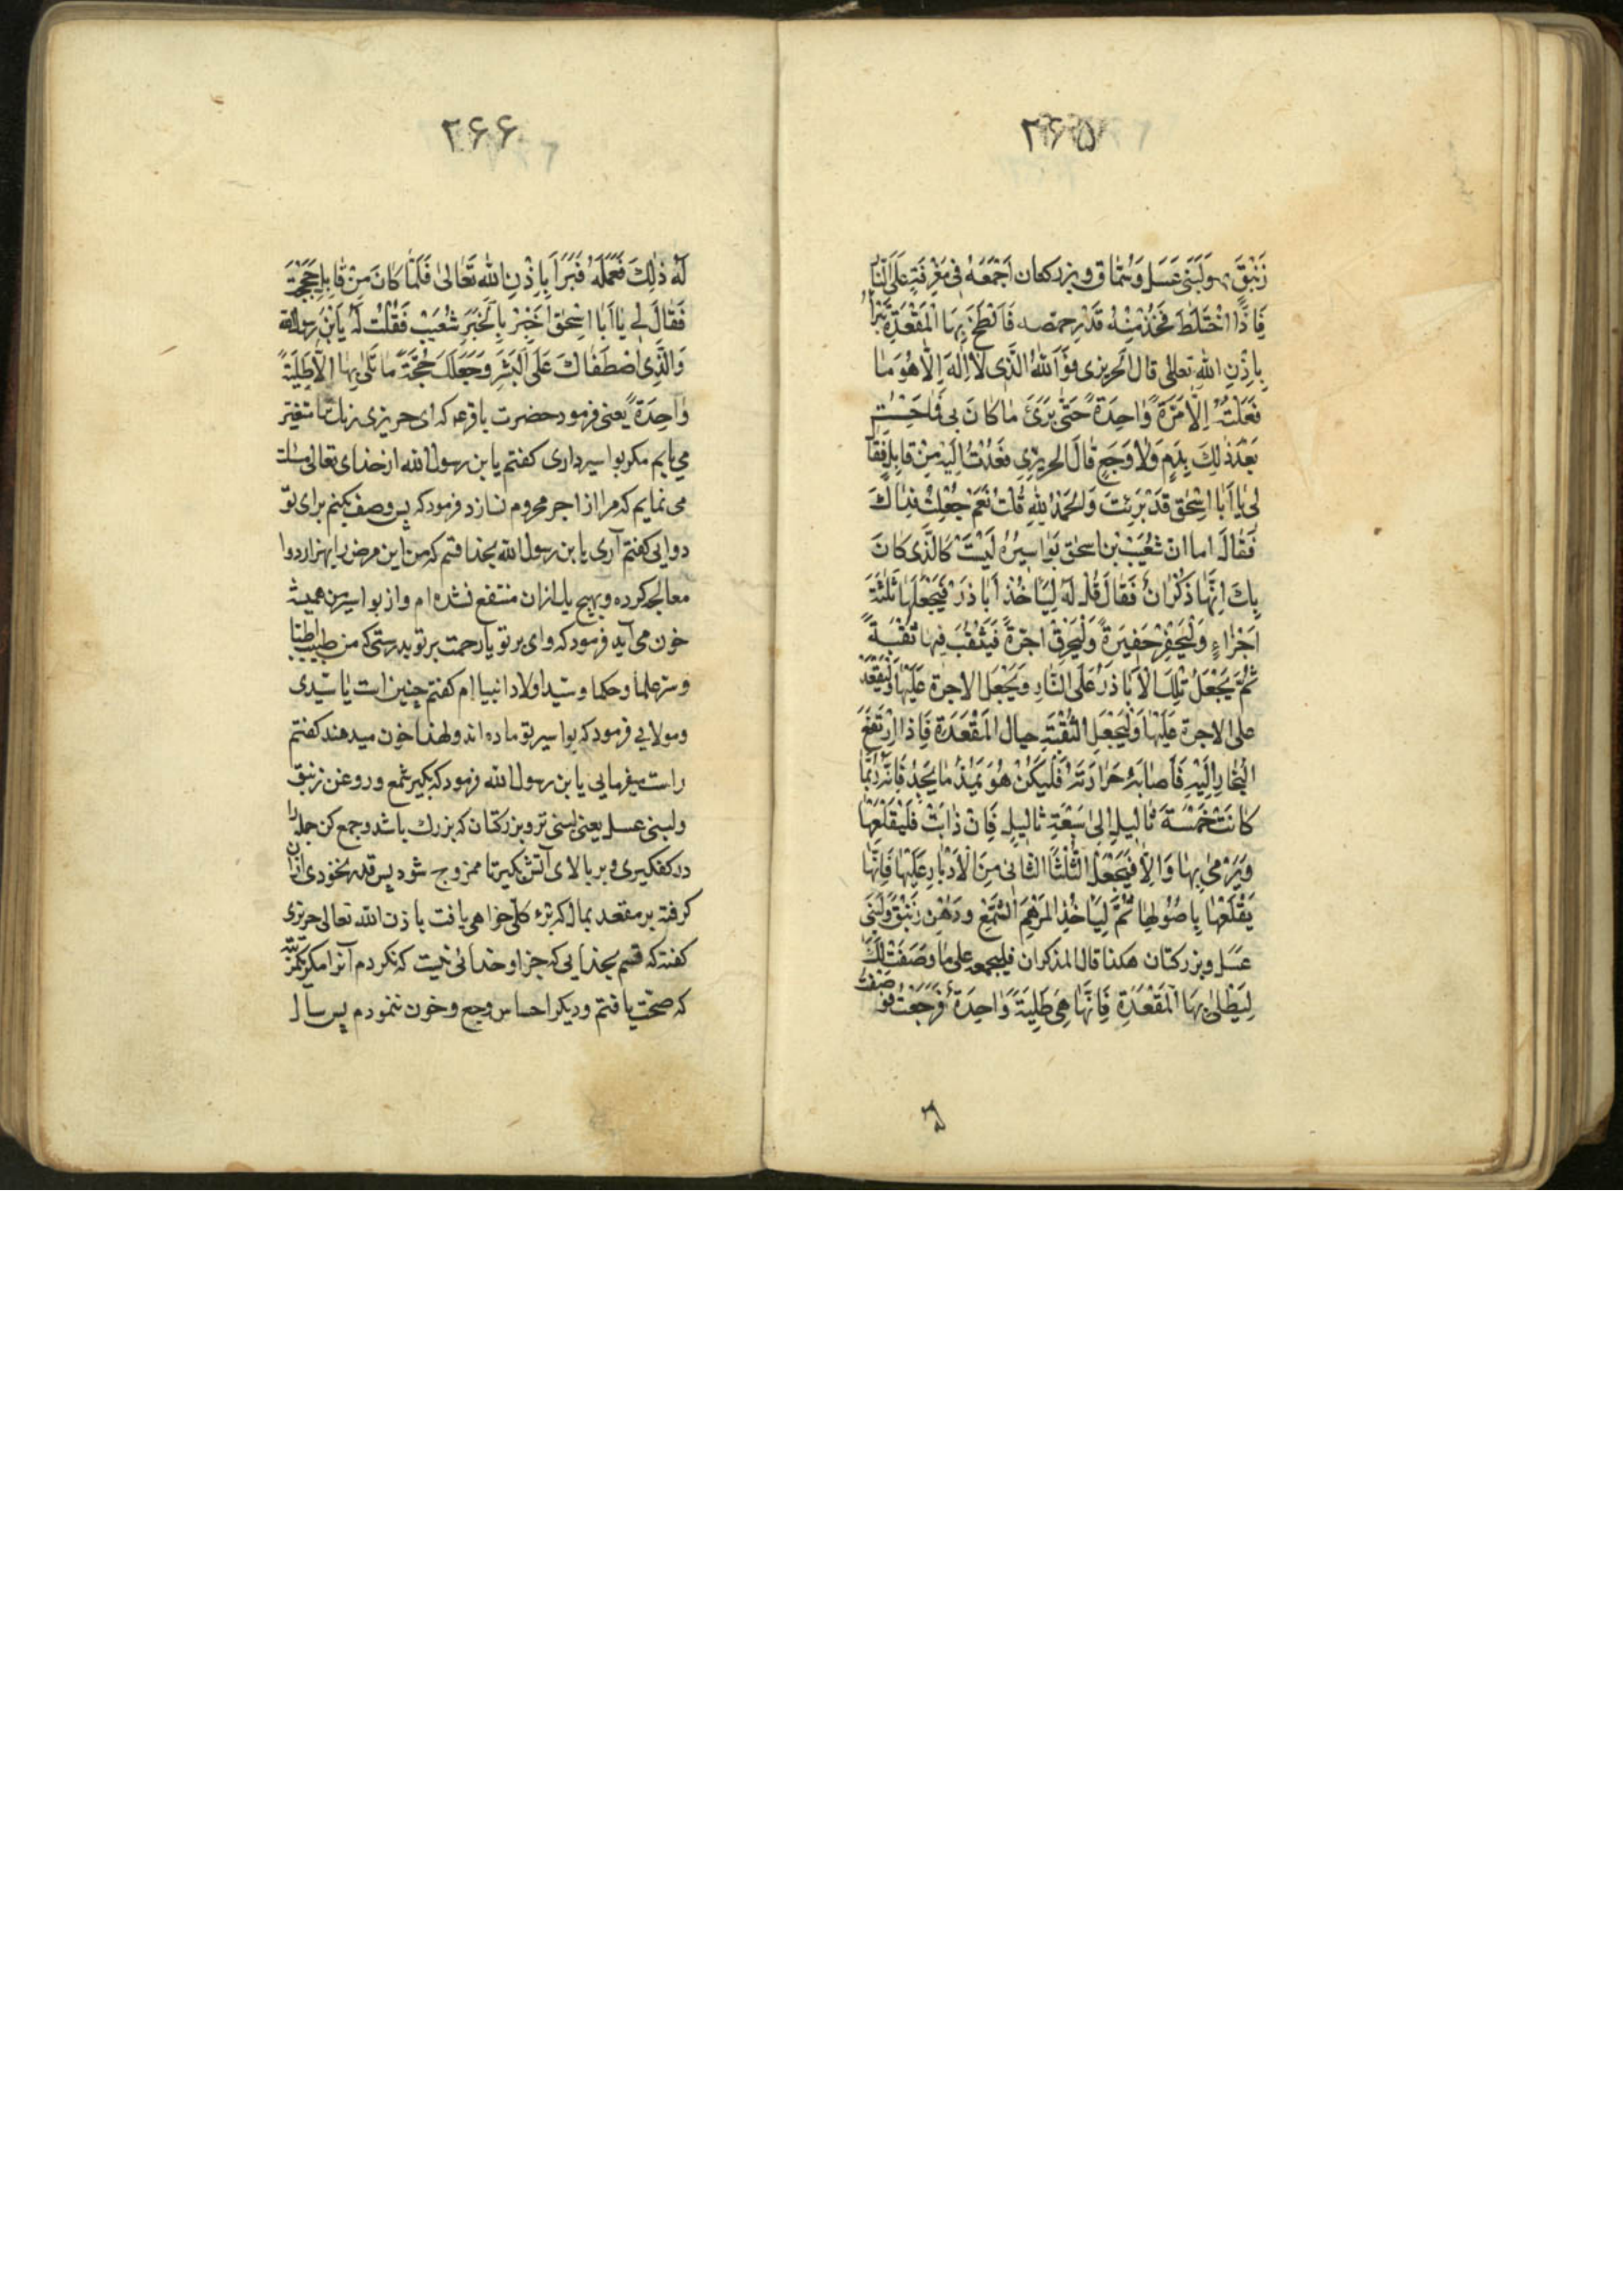 ۲۶۵
زَنْبَقَ وَلَبَنِی عَسَلٍ وَسُمّاق وبزرکعان اَجْمَعَهُ فی مَغْرِفَةٍ عَلَی النّا
فَاِذَا اخْتَلَطَ فَخُذْ مِنْهُ قَدْرَ حمّصه فَالْطَخْ بِهَا الْمَقْعَدَةَ تَبْرَأُ
بِاِذْنِ اللهِ تعالی قالَ الحریزی فَوَاللهِ الَّذی لا اِلهَ اِلّا هُوَ مَا
فَعَلْتُهُ اِلّا مَرَّةً وَاحِدَةً حَتّی بَرَئَ مَا کَانَ بی فَمَا حَسَسْتُ
بَعْدَ ذلِکَ بِدَمٍ وَلَا وَجَعٍ قَالَ الحریزی فَعُدْتُ اِلَیْهِ مِنْ قَابِلٍ فَقَا
لی یَا اَبَا اِسْحٰق قَدْ بَرِئْتَ وَالْحَمْدُ لِلّهِ قُلْتُ نَعَمْ جُعِلْتُ فِدَاکَ
فَقَالَ اما ان شُعَیْبَ بْن اسحٰق بَوَاسِیرُهُ لَیْسَتْ کَالَّذی کَانَ
بِکَ اِنَّهَا ذُکْرَانٌ فَقَالَ قُلْ لَهُ لِیَاْخُذْ اَبَاذَرَ فَیَجْعَلَهَا ثَلٰثَةَ
اَجْزَاءٍ وَلْیَحْفِرْ حَفِیرَةً وَلْیَخْرِقْ اجرّةً فَیَثْقُبَ فِیهَا ثُقْبَةً
ثُمَّ یَجْعَلُ تِلْکَ الْاَبَاذَرَ عَلَی النَّارِ وَیَجْعَلُ الاجرة عَلَیْهَا وَلْیَقْعُدْ
علی الاجرة عَلَیْهَا وَلْیَجْعَلِ الثُّقْبَةَ حِیالَ الْمَقْعَدَةِ فَاِذَا ارْتَفَعَ
الْبُخَارُ اِلَیْهِ فَاَصَابَهُ حَرَارَتُهُ فَلْیَکُنْ هُوَ یَعُدُّ مَا یَجِدُ فَاِنَّهُ رُبَّمَا
کَانَتْ خَمْسَةَ ثَالِیلَ اِلیٰ سَبْعَةِ ثَالِیلَ فَاِنْ ذَابَتْ فَلْیَقْلَعْهَا
وَیَرْمیٰ بِهَا وَاِلّا فَیَجْعَلُ الثُّلُثَ الثَّانی مِنَ الْاَدْبَارِ عَلَیْهَا فَاِنَّهَا
یَقْلَعُهَا بِاُصُولِهَا ثُمَّ لِیَاْخُذِ الْمَرْهَمَ الشَّمْعَ وَدُهْنَ زَنْبَقٍ وَلُبْنَی
عَسَلٍ وبزرکتان هکذا قال للذکران فلیجمعه علی مَا وَصَفْتُ لَکَ
لِیَطْلِیَ بِهَا الْمَقْعَدَةِ فَاِنَّهَا هِیَ طَلِیَةٌ وَاحِدَةٌ فَرَجَعْتُ فَوَ
صَفْتُ
۲۶۶
لَهُ ذٰلِکَ فَعَمِلَهُ فَبَرَأَ بِاِذْنِ اللهِ تَعَالیٰ فَلَمَّا کَانَ مِنْ قَابِلٍ حَجَجْتُ
فَقَالَ لی یَا اَبَا اِسْحٰق اَخْبِرْ بِالْخَبَرِ شُعَیْب فَقُلْتُ لَهُ یَابْنَ رَسُولِ الله
وَالَّذِی اصْطَفَاکَ عَلَی الْبَشَرِ وَجَعَلَکَ حُجَّةً مَا طَلیٰ بِهَا اِلّا طَلِیَةً
وَاحِدَةً یعنی فرمود حضرت باقر ع که ای حریزی رنک تو را متغیّر
می یابم مکر بواسیر داری کفتم یا بن رسول الله از خدای تعالی مسئلت
می نمایم که مرا از اجر محروم نسازد فرمود که پس وصف بکنم برای تو
دوایی کفتم آری یا بن رسول الله بخدا قسم که من این مرض را بهزار دوا
معالجه کرده و بهیچ یک از ان منتفع نشده ام و از بواسیر من همیشه
خون می آید فرمود که وای بر تو یا رحمت بر تو بدرستی که من طبیب اطبّا
و سر علما و حکما و سیّد اولاد انبیا ام کفتم چنین است یا سیّدی
و مولایی فرمود که بواسیر تو ماده اند و لهذا خون میدهند کفتم
راست میفرمایی یا بن رسول الله فرمود که بکیر شمع و روغن زنبق
ولبنی عسل یعنی لبنی تر و بزرکتان که بزرك باشد و جمع کن جمله را
در کفکیری و بر بالای آتش بکیر تا ممزوج شود پس قدر نخودی از ان
کرفته بر مقعد بمال که برء کلّی خواهی یافت باذن الله تعالی حریزی
کفته که قسم بخدایی که جز او خدائی نیست که نکردم آنرا مکر یکمرتبه
که صحّت یافتم و دیکر احساس وجع و خون ننمودم پس سال